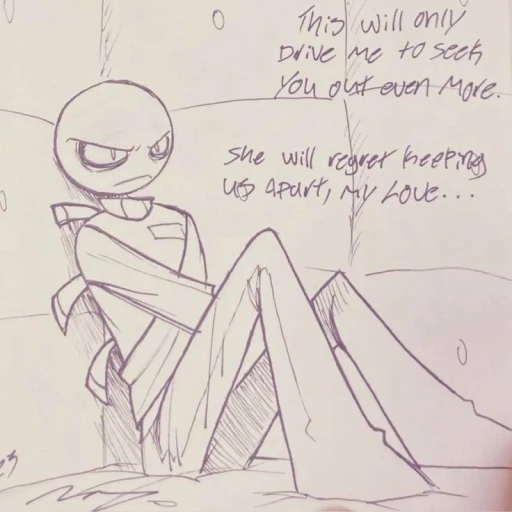 This will only
Drive me to seek
You out even more.
She will regret keeping
us apart, my love...